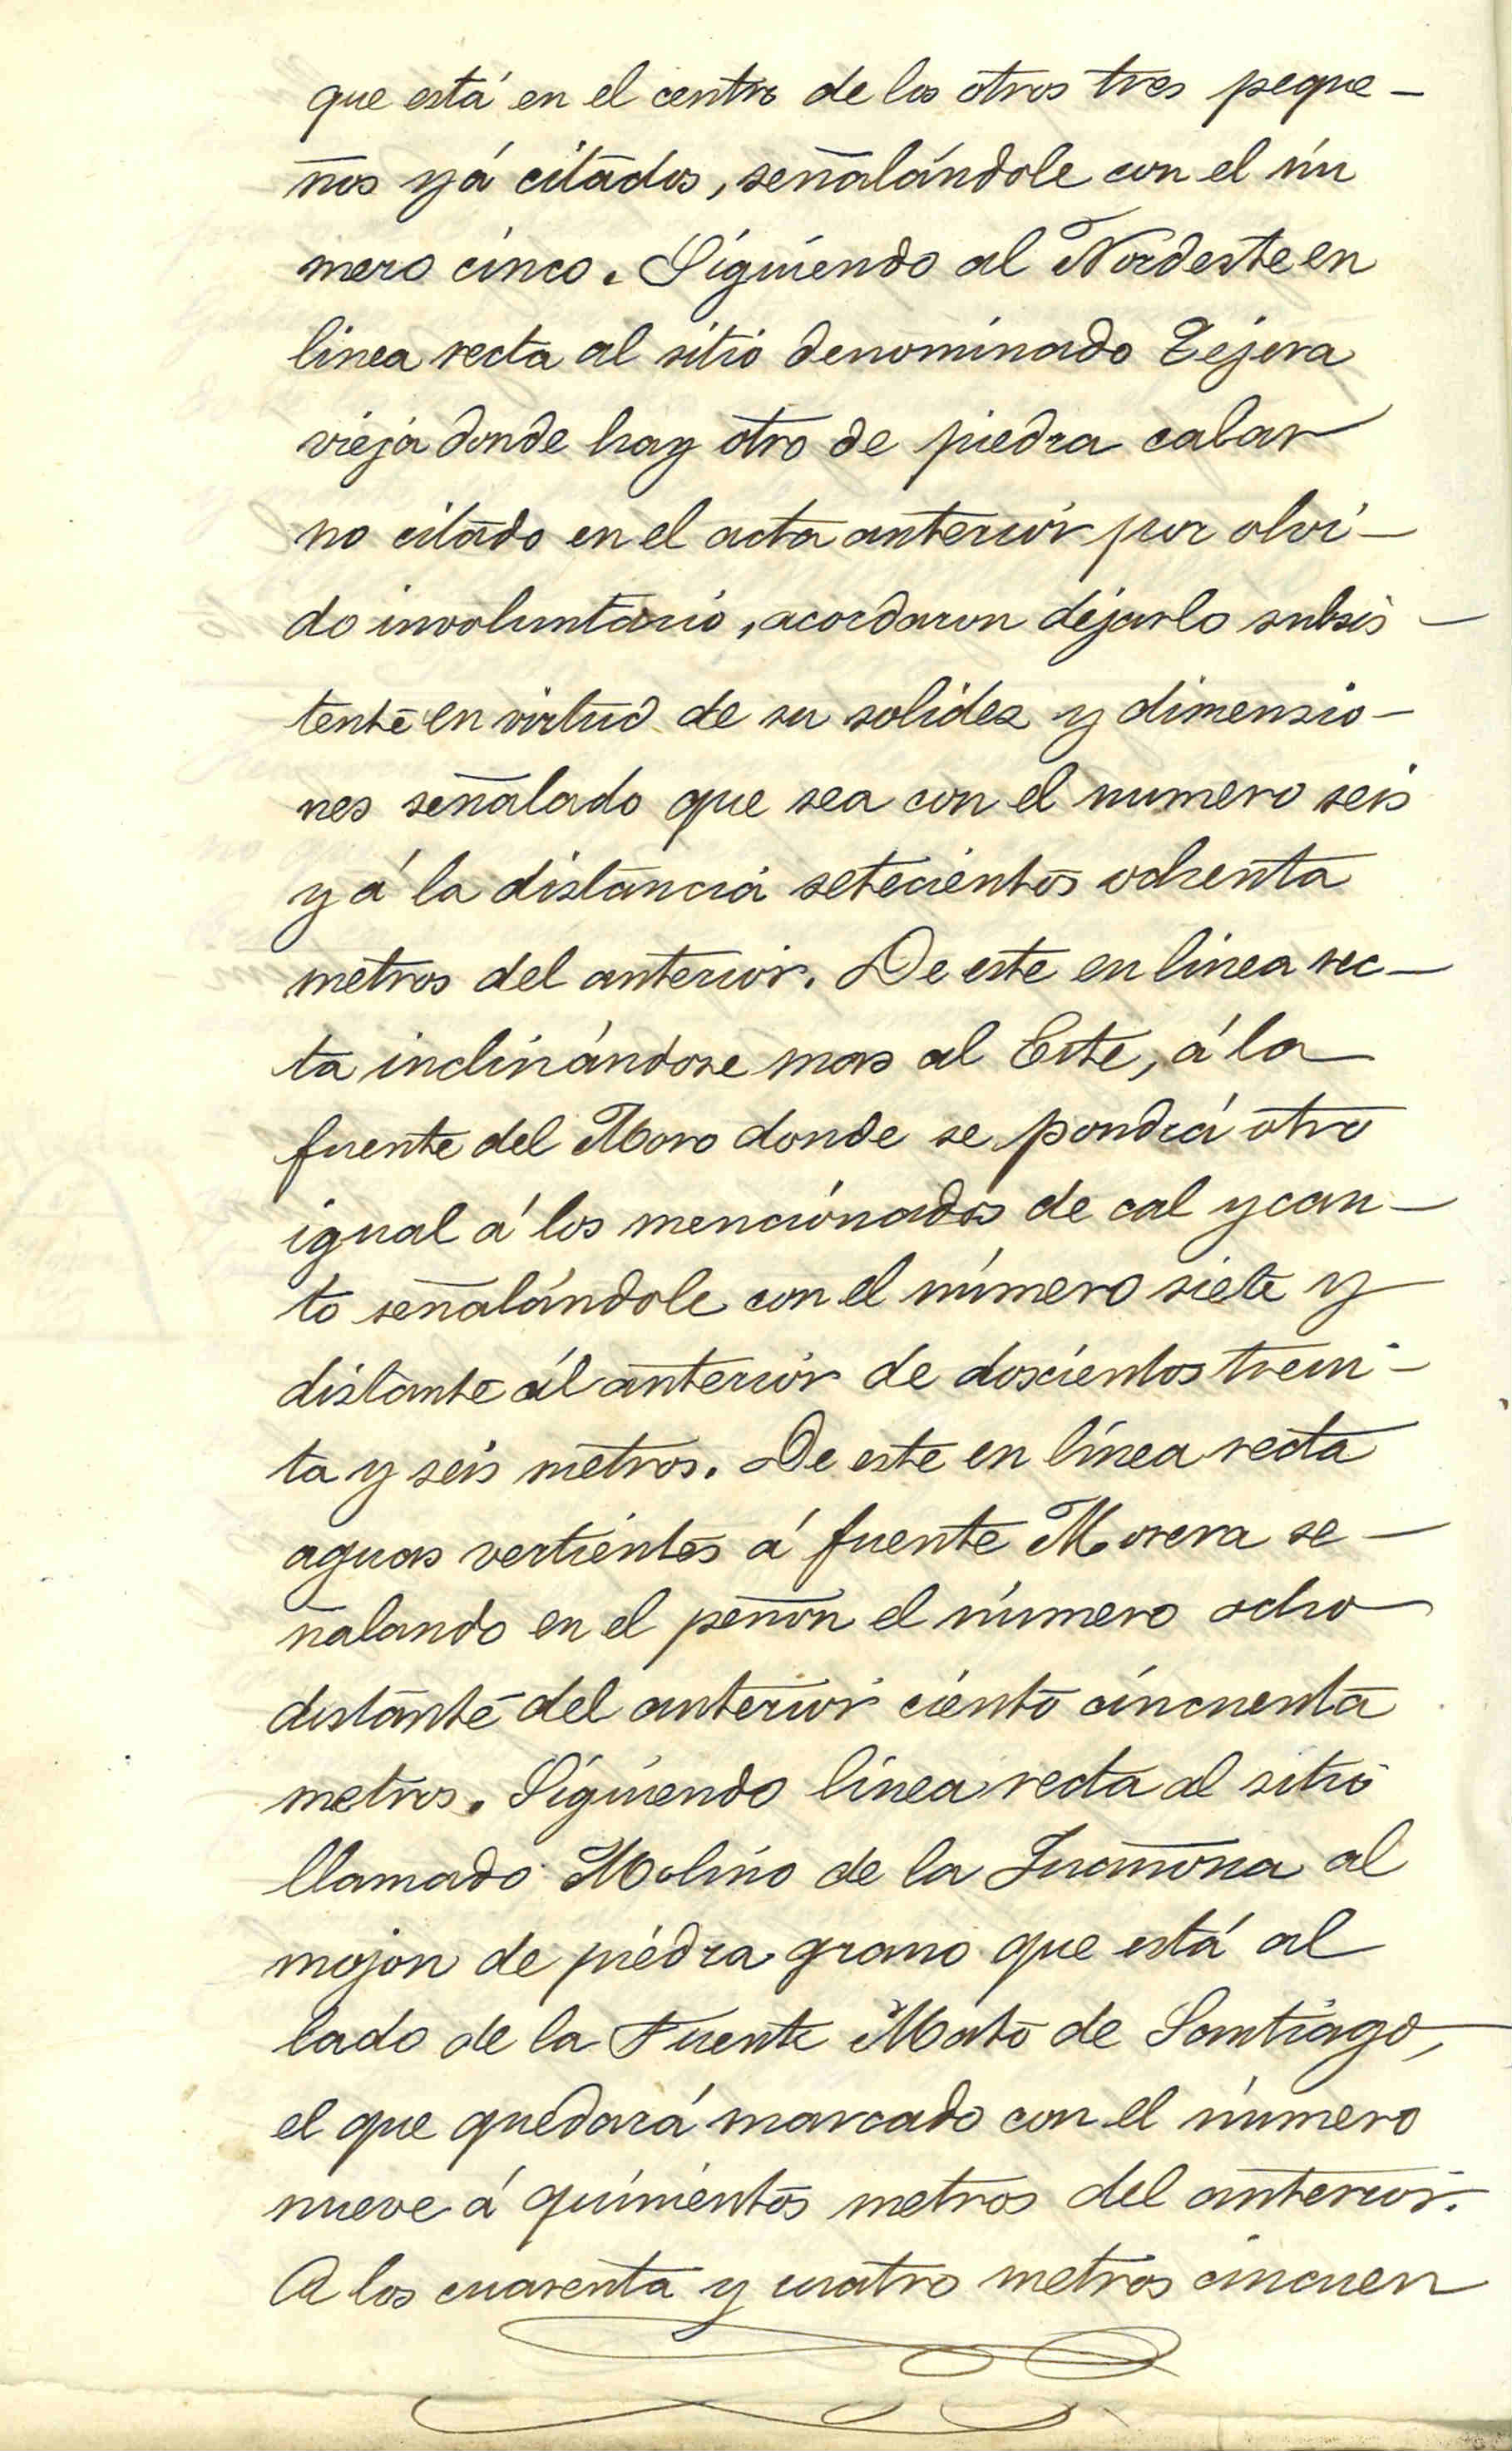 que está en el centro de los otros tres peque-
ños yá citados, señalándole con el nú
mero cinco. Siguiendo al Nordeste en
linea recta al sitio denominado Tejera
vieja donde hay otro de piedra calar
no citado en el acta anterior por olvi-
do involuntario, acordaron dejarlo subsis-
tente en virtud de su solidez y dimensio-
nes señalado que sea con el numero seis
y á la distancia setecientos ochenta
metros del anterior. De este en linea rec-
ta inclinándose mas al Este, á la
fuente del Moro donde se pondrá otro
igual á los mencionados de cal y can-
to señalándole con el número siete y
distante ál anterior de doscientos trein-
ta y seis metros. De este en línea recta
aguas vertientes á fuente Morena se-
ñalando en el peñon el número ocho
distante del anterior ciento cincuenta
metros. Siguiendo linea recta al sitio
llamado Molino de la Juañona al
mojon de piedra grano que está al
lado de la Fuente Mato de Santiago,
el que quedará marcado con el número
nueve á quinientos metros del anterior.
A los cuarenta y cuatro metros cincuen